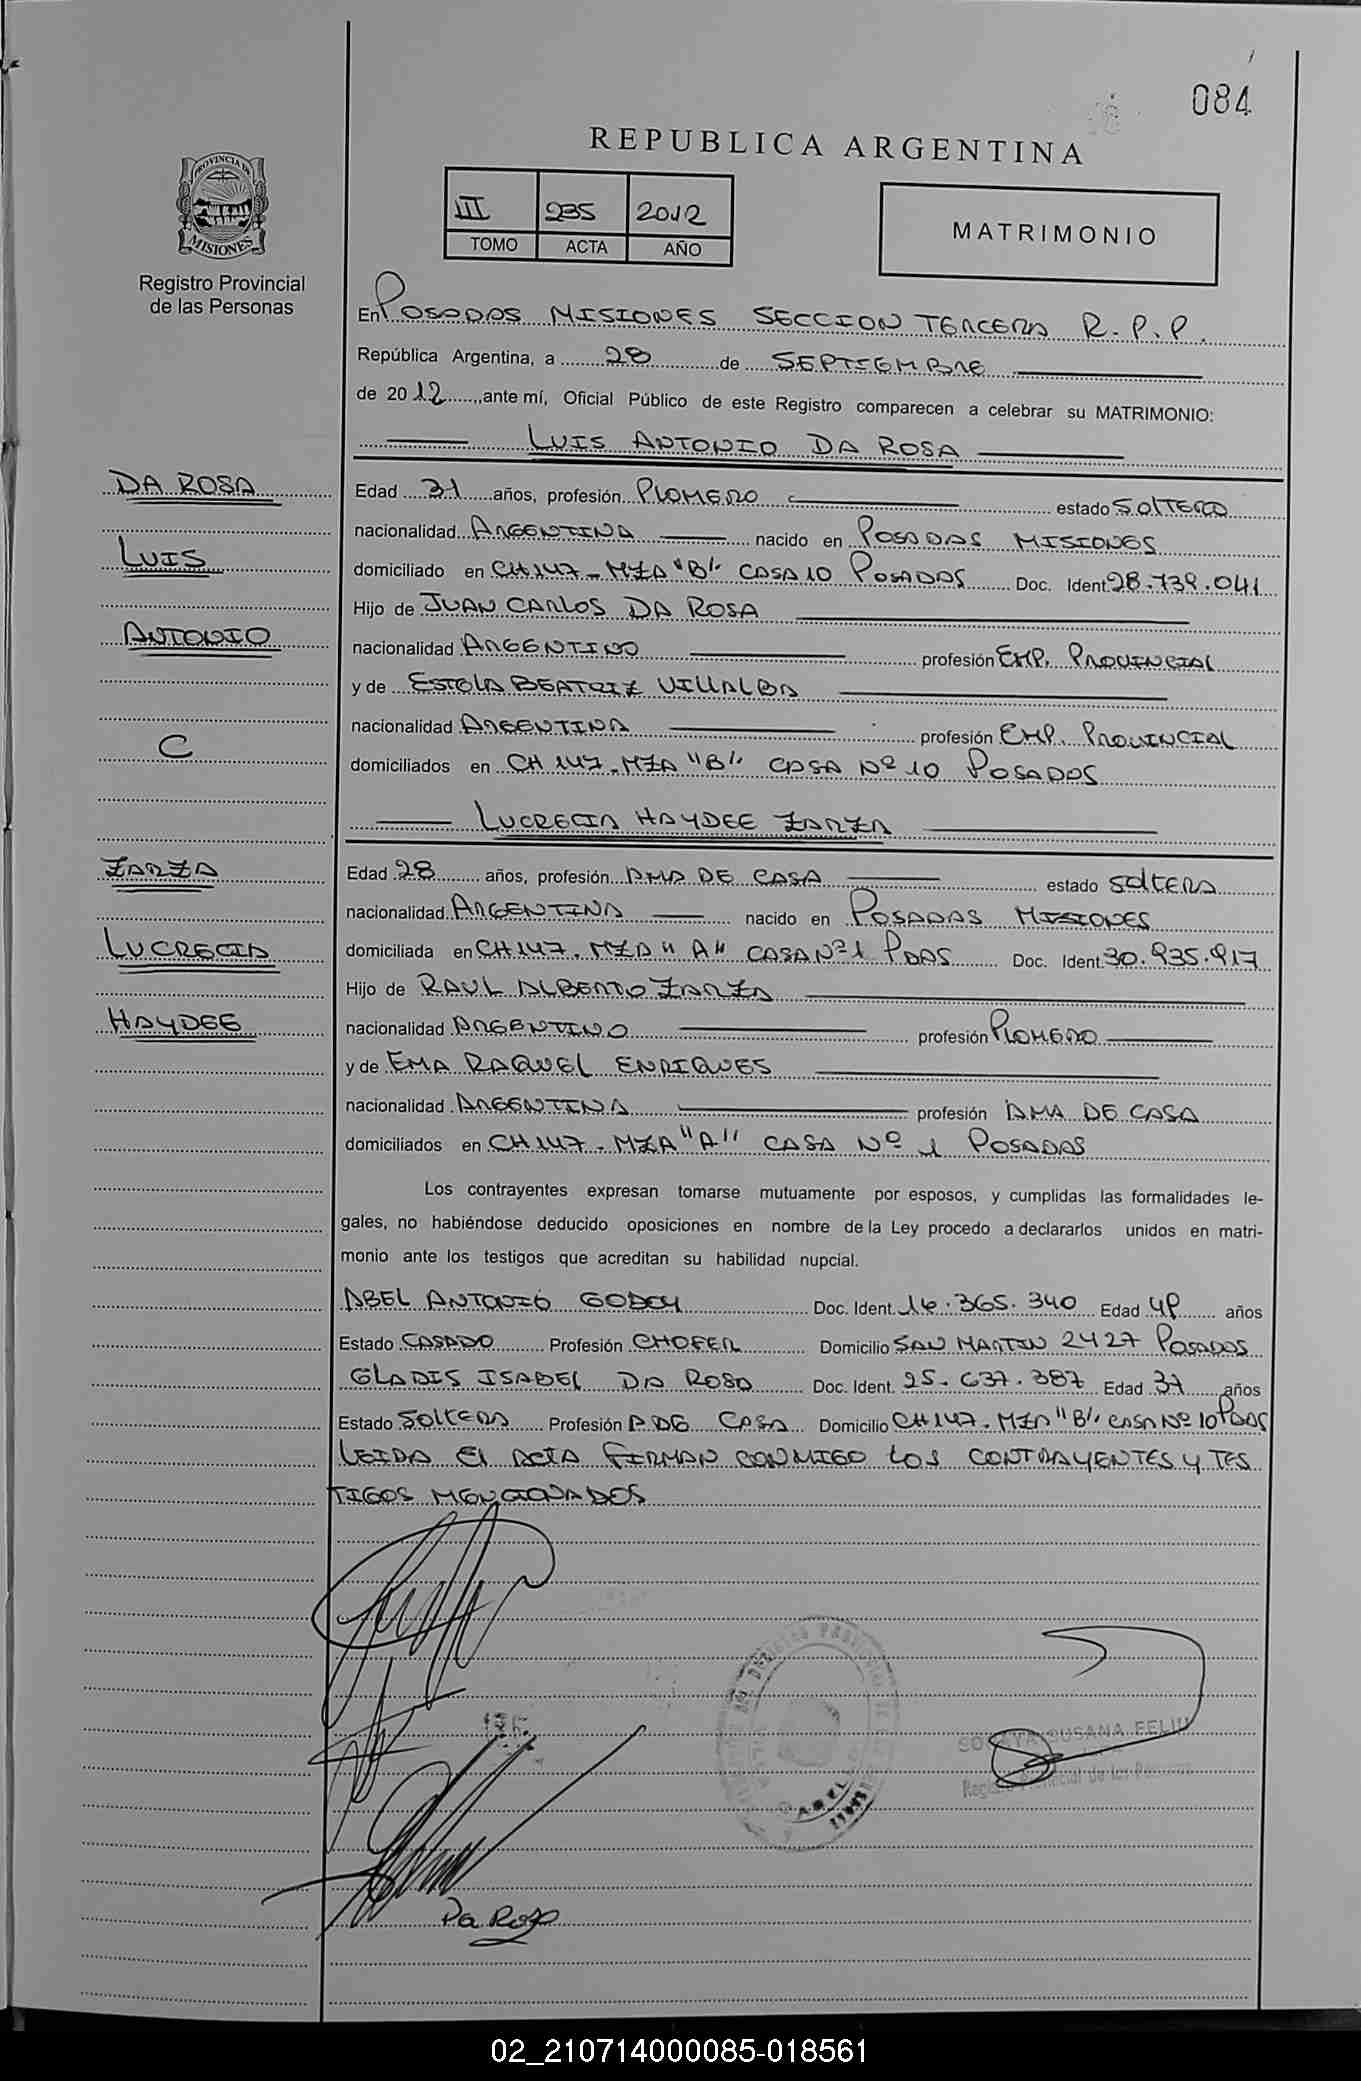 084
REPUBLICA ARGENTINA
PROVINCIA DE
MISIONES
Registro Provincial
de las Personas
III 235 2012
TOMO ACTA AÑO
MATRIMONIO
En POSADAS MISIONES SECCION TERCERA R.P.P.
República Argentina, a 28 de SEPTIEMBRE
de 2012, ante mí, Oficial Público de este Registro comparecen a celebrar su MATRIMONIO:
LUIS ANTONIO DA ROSA
DA ROSA
LUIS
ANTONIO
C
Edad 31 años, profesión PLOMERO estado SOLTERO
nacionalidad ARGENTINA nacido en POSADAS MISIONES
domiciliado en CH 147 - MZA "B" CASA 10 POSADAS Doc. Ident. 28.739.041
Hijo de JUAN CARLOS DA ROSA
nacionalidad ARGENTINO profesión EMP. PROVINCIAL
y de ESTELA BEATRIZ VILLALBA
nacionalidad ARGENTINA profesión EMP. PROVINCIAL
domiciliados en CH 147 - MZA "B" CASA Nº 10 POSADAS
LUCRECIA HAYDEE ZARZA
ZARZA
LUCRECIA
HAYDEE
Edad 28 años, profesión AMA DE CASA estado SOLTERA
nacionalidad ARGENTINA nacido en POSADAS MISIONES
domiciliada en CH 147 - MZA "A" CASA Nº 1 PDAS Doc. Ident. 30.935.917
Hijo de RAUL ALBERTO ZARZA
nacionalidad ARGENTINO profesión PLOMERO
y de EMA RAQUEL ENRIQUES
nacionalidad ARGENTINA profesión AMA DE CASA
domiciliados en CH 147 - MZA "A" CASA Nº 1 POSADAS
Los contrayentes expresan tomarse mutuamente por esposos, y cumplidas las formalidades le-
gales, no habiéndose deducido oposiciones en nombre de la Ley procedo a declararlos unidos en matri-
monio ante los testigos que acreditan su habilidad nupcial.
ABEL ANTONIO GODOY Doc. Ident. 14.365.340 Edad 49 años
Estado CASADO Profesión CHOFER Domicilio SAN MARTIN 2427 POSADAS
GLADIS ISABEL DA ROSA Doc. Ident. 25.637.387 Edad 37 años
Estado SOLTERA Profesión A. DE CASA Domicilio CH 147 - MZA "B" CASA Nº 10 PDAS
LEIDA EL ACTA FIRMAN CONMIGO LOS CONTRAYENTES Y TES
TIGOS MENCIONADOS
SUSANA FELIU
Registro Provincial de las Personas
Da Rosa
02_210714000085-018561